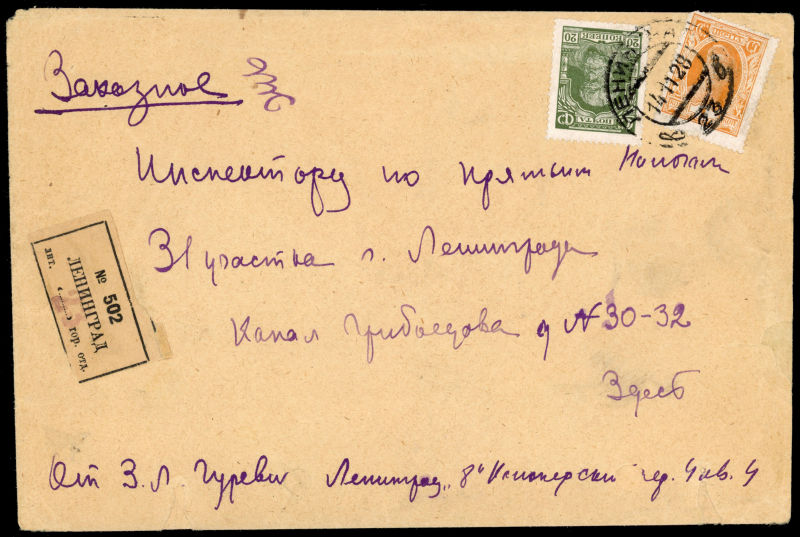 Заказное
Инспектору по прямым Налогам
31 участка г. Ленинграда
Канал Грибоедова д № 30-32
Здесь
От З. Л. Гуревич Ленинград, 8я кв. 4
№ 502
ЛЕНИНГРАД
гор. отд.
20 КОПЕЕК 20
ПОЧТА
ЛЕНИНГРАД
14-11-28
23